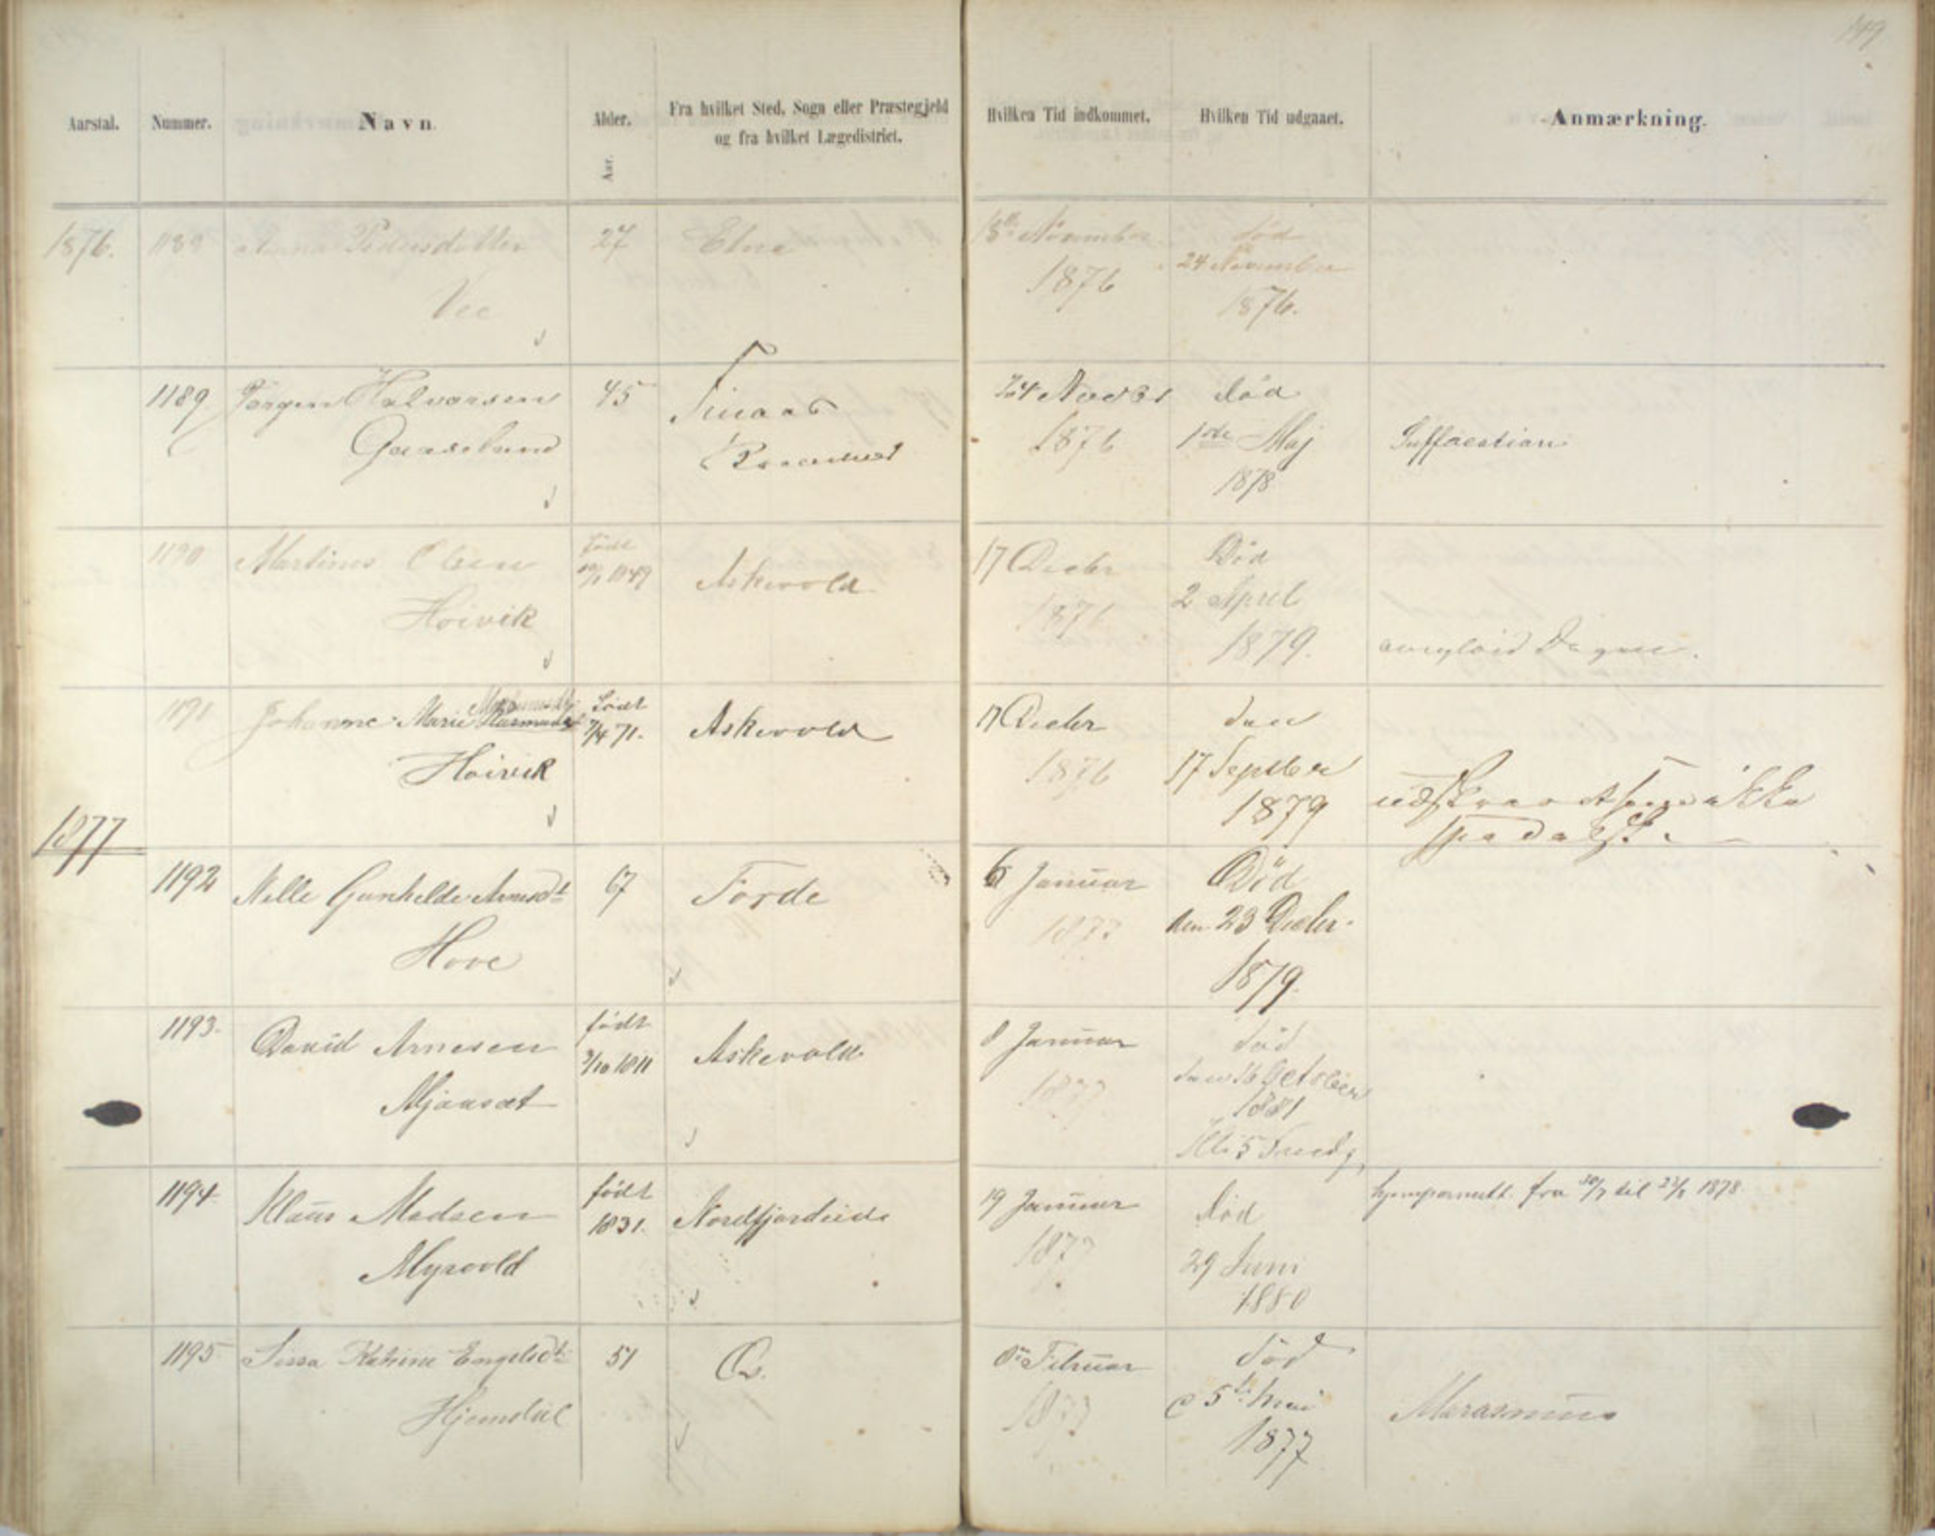 149
Aarstal. Nummer. Navn. Alder. Fra hvilket Sted, Sogn eller Præstegjeld Hvilken Tid indkommet. Hvilken Tid udgaaet. Anmærkning.
Aar. og fra hvilket Lægedistrict.
1876. 1188 Anna Pedersdatter 27 Etne 18de November død
Vee 1876 24 November
1876.
1189 Jørgen Halvorsen 45 Finaas 24 Novbr død
1876 1de Maj
1878
1190 Martinus Olsen født Askevold 17 Decbr Død
Høivik 1849 1876 2 April
1879.
1191 Johanne Marie Rasmusdt født Askevold 17 Decbr den
Høivik 7/4 71. 1876 17 Septber
1879 ikke
spedalsk.
1877
1192 Nille Gunhilde Arnesdt 67 Førde 6 Januar Død
Hove 1877 den 23 Decbr.
1879.
1193. David Arnesen født Askevold 8 Januar død
3/10 1811 1877 den 16 October
1881
1194. Klaus Madsen født Nordfjordeide 19 Januar død hjempermitt. fra 30/7 til 23/8 1878.
Myrvold 1831. 1877 29 Juni
1880
1195 Sissa Katrine Engelsdt 51 Os. Februar død
Hjemdal 1877 5te Mai Marasmus
1877